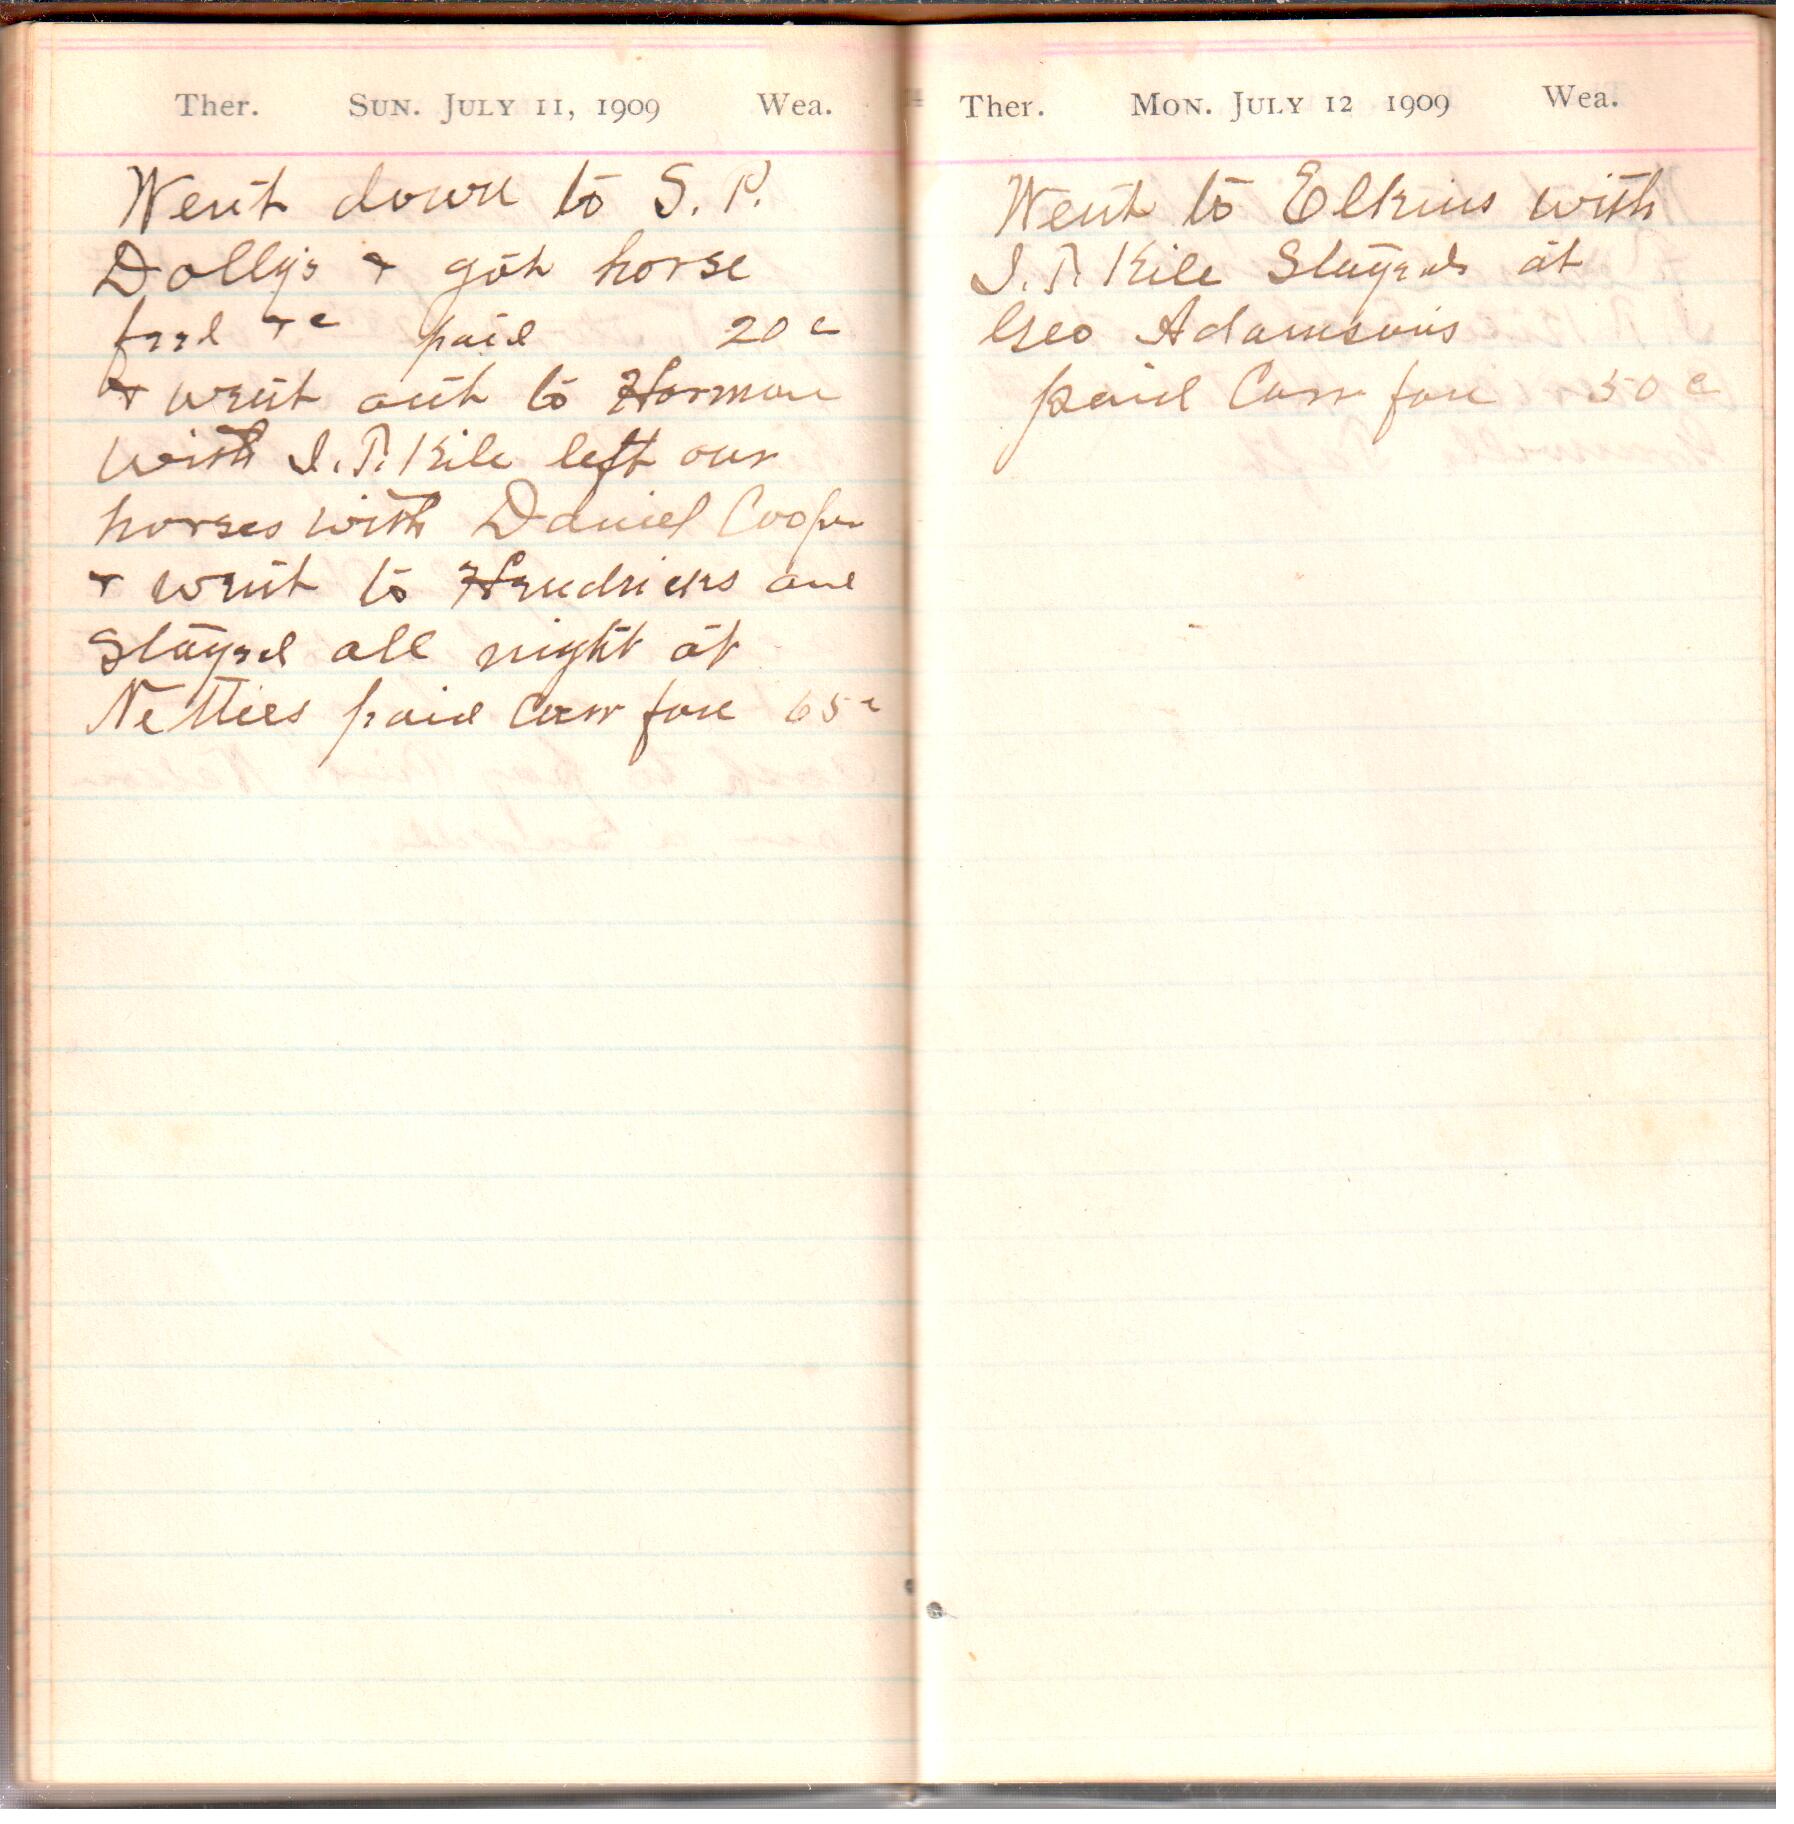 Ther. Sun. July 11, 1909 Wea.
Went down to S. P.
Dolly's & got horse
feed &c paid 20c
& went out to Harman
with I. P. Kile left our
horses with Daniel Cooper
& went to Hendricks and
Stayed all night at
Netties paid Carr fare 65c
Ther. Mon. July 12 1909 Wea.
Went to Elkins with
I. P. Kile Stayed at
Geo Adamsons
paid Carr fare 50c